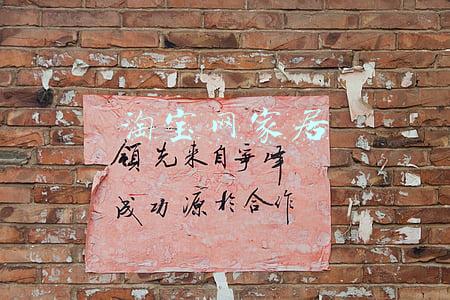 淘宝网家居
领先来自争峰
成功源於合作